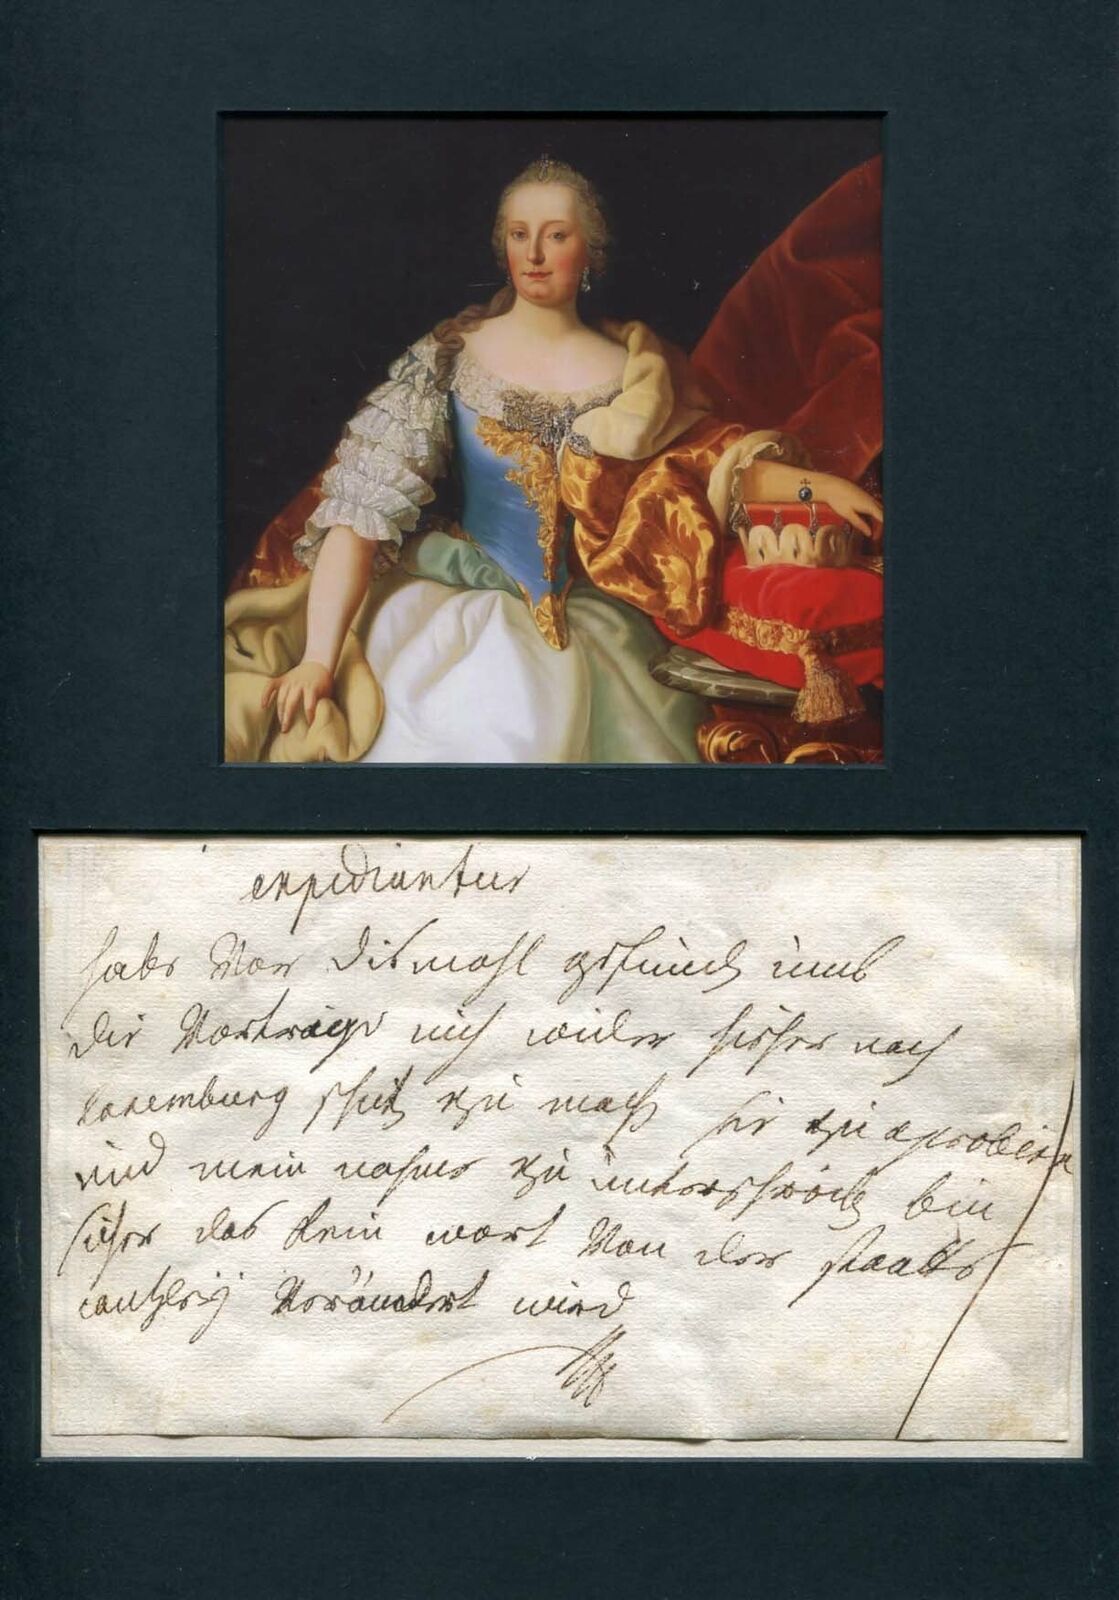 expediantur
habe vor dismahl geschwind umb
die vorträge nich wider hieher nach
Laxemburg schick zu mach sie zu aprobirn
und mein nahme zu unterschreiben bin
sicher das kein wort von der staats
cantzleij verändert wird